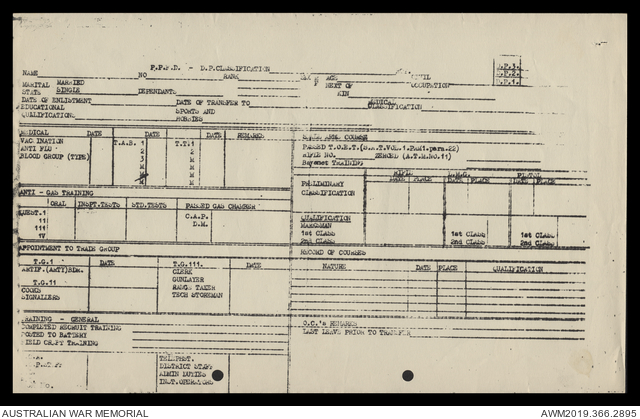 D.P.CLASSIFICATION
D.P.3.
D.P.2.
D.P.1.
NAME NO RANK AGE CIVIL
MARITAL MARRIED NEXT OF OCCUPATION
STATE SINGLE DEPENDANTS KIN
DATE OF ENLISTMENT DATE OF TRANSFER TO MEDICAL
EDUCATIONAL SPORTS AND CLASSIFICATION
QULLIFICATIONS HOBBIES
MEDICAL DATE DATE DATE REMARKS
VACCINATION T.A.B. 1 T.T.1
ANTI FLU 2 2
BLOOD GROUP (TYPE) 3 M
M M
M M
SMALL ARMS COURSE
RIFLE NO. ZEROED (A.T.M.NO.11)
Bayonet TRAINING
RIFLE L.M.G. PISTOL
DATE PLACE DATE PLACE DATE PLACE
PRELIMINARY
CLASSIFICATION
QUALIFICATION
MARKSMAN
1st CLASS 1st CLASS 1st CLASS
2nd CLASS 2nd CLASS 2nd CLASS
ANTI - GAS TRAINING
ORAL INSPT.TESTS STD.TESTS PASSED GAS CHAMBER
QUEST.1 C.A.P.
11 D.M.
111
1V
APPOINTMENT TO TRADE GROUP
T.G.1 DATE T.G.111. DATE
ARTIF. (ARTY)SDM. CLERK
T.G.11 GUNLAYER
COOKS RANGE TAKER
SIGNALLERS TECH STOREMAN
RECORD OF COURSES
NATURE DATE PLACE QUALIFICATION
TRAINING - GENERAL
COMPLETED RECRUIT TRAINING
POSTED TO BATTERY
FIELD CRAFT TRAINING
O.C.'s REMARKS
LAST LEAVE PRIOR TO TRANSFER
TELEPHST.
DISTRICT STAFF
ADMIN DUTIES
INST.OPERATORS
AUSTRALIAN WAR MEMORIAL AWM2019.366.2895